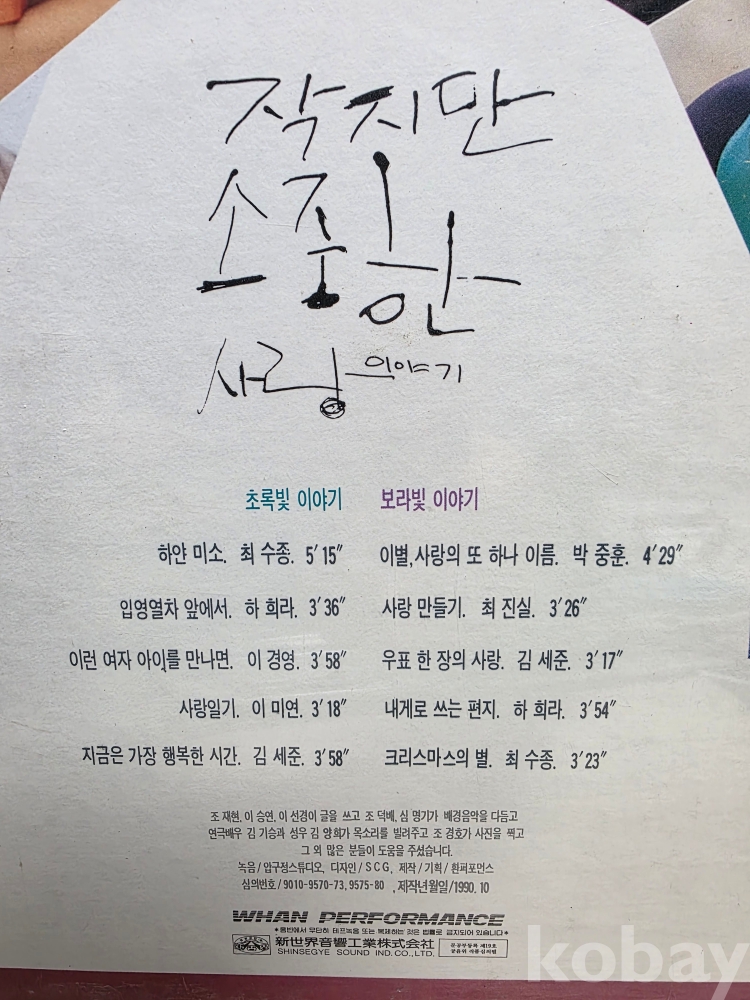 작지만
소중한
사랑이야기
초록빛 이야기
하얀 미소. 최 수종. 5′15″
입영열차 앞에서. 하 희라. 3′36″
이런 여자 아이를 만나면. 이 경영. 3′58″
사랑일기. 이 미연. 3′18″
지금은 가장 행복한 시간. 김 세준. 3′58″
보라빛 이야기
이별,사랑의 또 하나 이름. 박 중훈. 4′29″
사랑 만들기. 최 진실. 3′26″
우표 한 장의 사랑. 김 세준. 3′17″
내게로 쓰는 편지. 하 희라. 3′54″
크리스마스의 별. 최 수종. 3′23″
조 재현, 이 승연, 이 선경이 글을 쓰고 조 덕배, 심 명기가 배경음악을 다듬고
연극배우 김 기승과 성우 김 양희가 목소리를 빌려주고 조 경호가 사진을 찍고
그 외 많은 분들이 도움을 주셨습니다.
녹음/압구정스튜디오, 디자인/SCG, 제작/기획/환퍼포먼스
심의번호/9010-9570-73, 9575-80, 제작년월일/1990. 10
WHAN PERFORMANCE
*음반에서 무단히 테프녹음 또는 복제하는 것은 법률로 금지되어 있습니다*
新世界音響工業株式会社
SHINSEGYE SOUND IND.CO., LTD.
문공부등록 제19호
공윤위 사증심의필
kobay